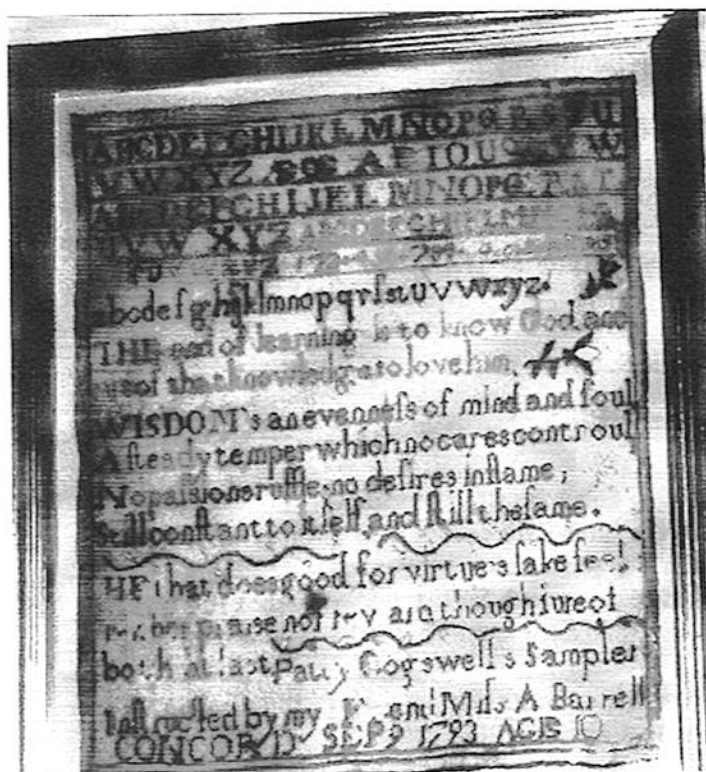 ABCDEFGHIJKLMNOPQRSTU
VWXYZ AEIOU W
ABCDEFGHIJKLMNOPQR
VWXYZ
abcdefghijklmnopqrſstuvwxyz.
THE end of learning is to know God and
out of that knowledge to love him,
WISDOM's an evenneſs of mind and ſoul
A ſteady temper which no cares controul
No paſsions ruffle, no deſires inflame;
Still conſtant to itſelf, and ſtill the ſame.
HE that does good for virtue's ſake ſeeks
praise nor reward though ſure of
both at laſt Patty Cogswell's Sampler
Inſtructed by my Friend Miſs A Barrell
CONCORD SEP 9 1793 AGE 10